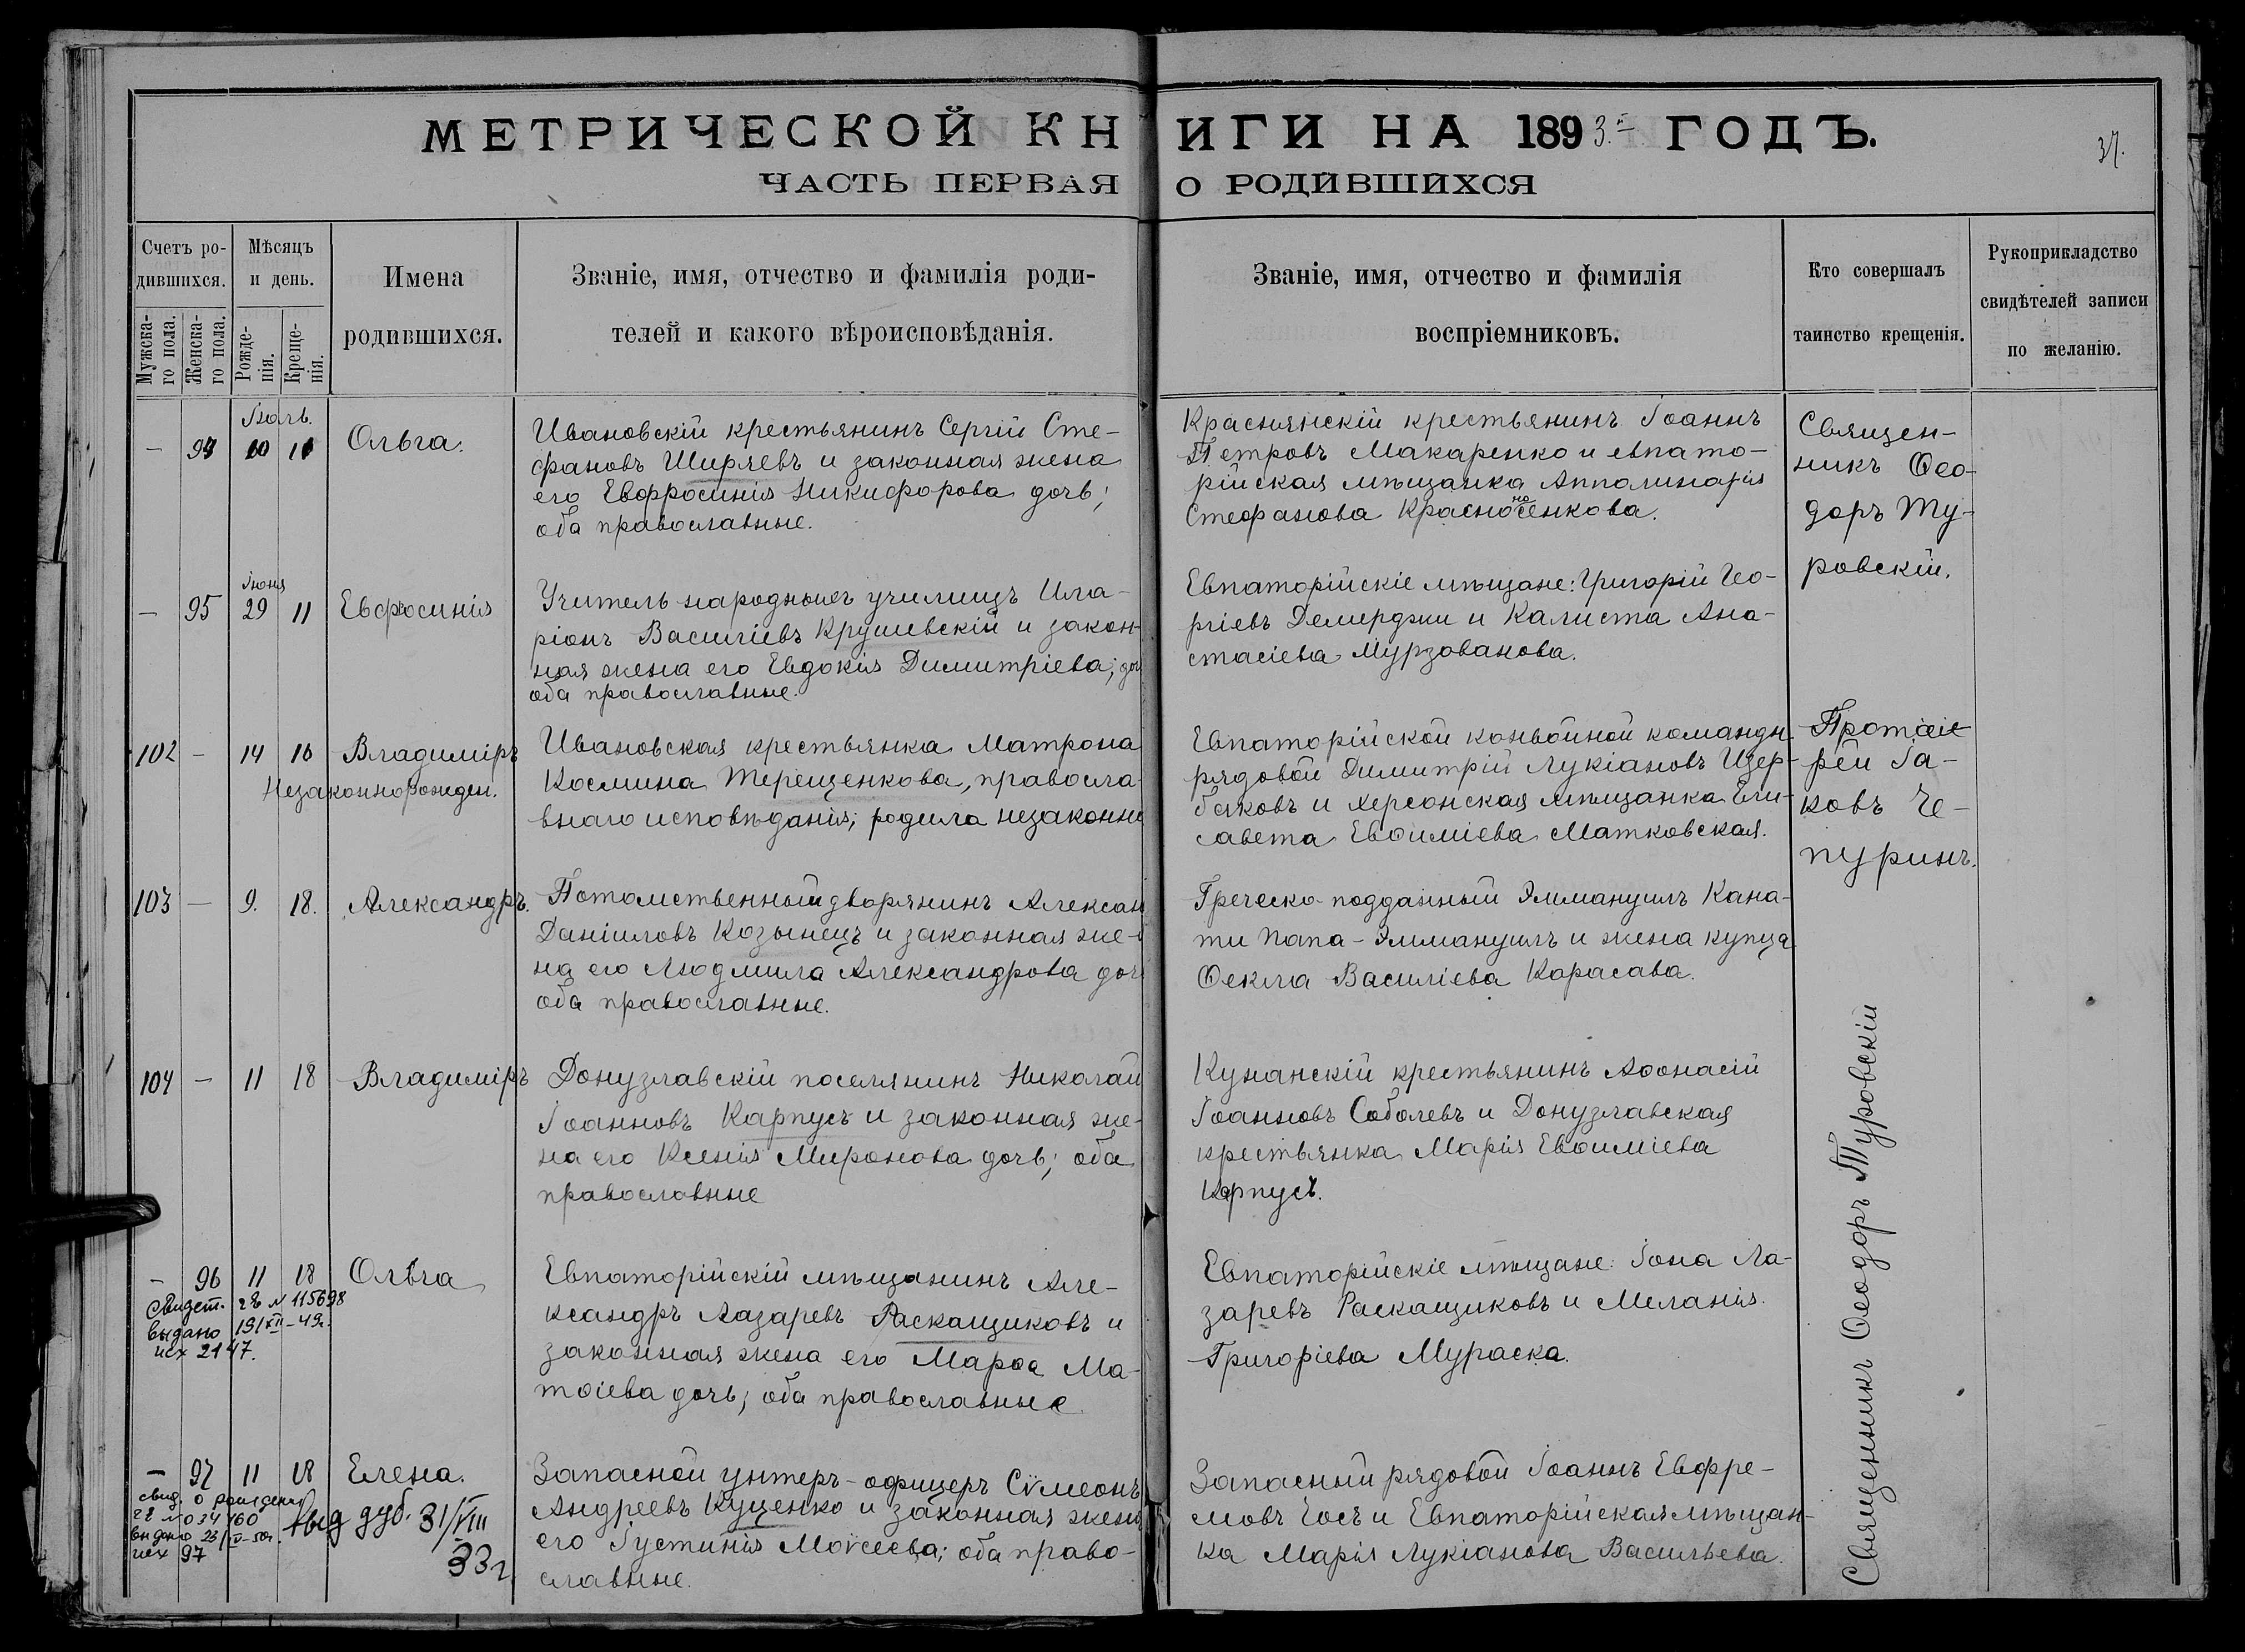 МЕТРИЧЕСКОЙ КНИГИ НА 1893 ГОДЪ.
37.
ЧАСТЬ ПЕРВАЯ О РОДИВШИХСЯ
Счетъ родившихся.
Мужскаго пола.
Женскаго пола.
Мѣсяцъ и день.
Рожденія.
Крещенія.
Имена
родившихся.
Званіе, имя, отчество и фамилія роди-
телей и какого вѣроисповѣданія.
Званіе, имя, отчество и фамилія
воспріемниковъ.
Кто совершалъ
таинство крещенія.
Рукоприкладство
свидѣтелей записи
по желанію.
Іюль.
— 94 10 11 Ольга.
Ивановскій крестьянинъ Сергій Сте-
фановъ Ширяевъ и законная жена
его Евфросинія Никифорова дочь;
оба православные.
Краснянскій крестьянинъ Іоаннъ
Петровъ Макаренко и евпато-
рійская мѣщанка Апполинарія
Стефанова
Священ-
никъ Ѳео-
доръ Ту-
ровскій.
Іюня
— 95 29 11 Евфросинія
Учитель народныхъ училищъ Ила-
ріонъ Василіевъ Крушевскій и закон-
ная жена его Евдокія Димитріева;
оба православные.
Евпаторійскіе мѣщане: Григорій Гео-
ргіевъ Демерджи и Калиста Ана-
стасіева Мурзованова.
102 — 14 16 Владиміръ
Незаконнорожден.
Ивановская крестьянка Матрона
Космина Терещенкова, правосла-
внаго исповѣданія; родила незаконно
Евпаторійской конвойной команды
рядовой Димитрій Лукіановъ Щер-
баковъ и херсонская мѣщанка Ели-
савета Евѳиміева Матковская.
Протоіе-
рей Іа-
ковъ Че-
пуринъ.
103 — 9. 18. Александръ.
Потомственный дворянинъ Алексан
Даніиловъ Козынецъ и законная же-
на его Людмила Александрова доч
оба православные.
Греческо-подданный Эммануилъ Кана-
ти Папа-Эммануилъ и жена купца
Ѳекла Василіева Карасава.
104 — 11 18 Владиміръ
Донузлавскій поселянинъ Николай
Іоанновъ Карпусъ и законная же-
на его Ксенія Миронова дочь; оба
православные
Кунанскій крестьянинъ Аѳонасій
Іоанновъ Соболевъ и Донузлавская
крестьянка Марія Евѳиміева
Карпусъ.
— 96 11 18 Ольга
Свидет. гв № 115698
выдано 19/XII-49г.
исх 2147.
Евпаторійскій мѣщанинъ Але-
ксандръ Лазаревъ Раскащиковъ и
законная жена его Марѳа Ма-
тѳіева дочь; оба православные
Евпаторійскіе мѣщане: Іона Ла-
заревъ Раскащиковъ и Меланія
Григоріева Мураска.
— 97 11 18 Елена.
свид. о рождении
№ 034160
исх 97
выд дуб. 31/VIII
33г.
Запасной унтеръ-офицеръ Сѵмеонъ
Андреевъ Куценко и законная жена
его Іустинія Моѵсеева; оба право-
славные.
Запасный рядовой Іоаннъ Евфре-
мовъ и Евпаторійская мѣщан-
ка Марія Лукіанова Васильева.
Священникъ Ѳеодоръ Туровскій